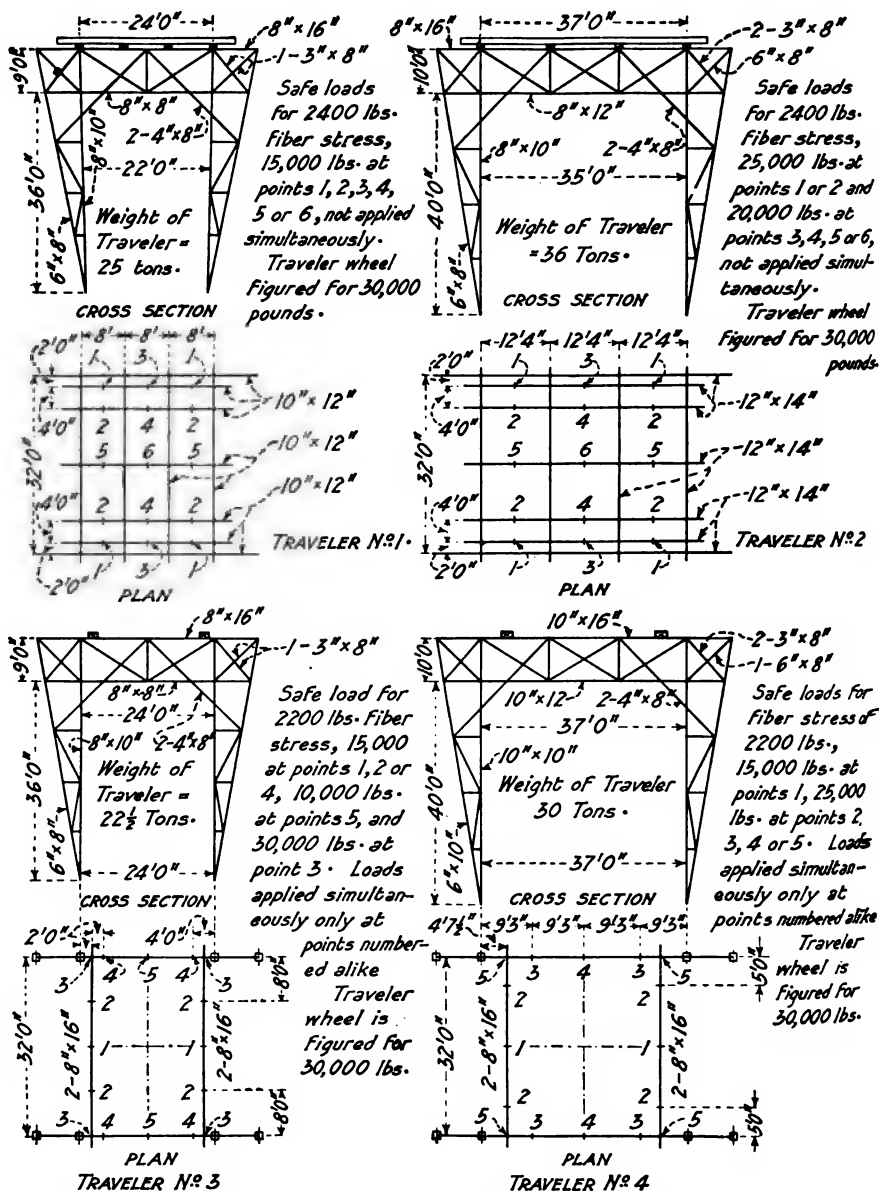 24'0"
8"×16"
1-3"×8"
9'0"
8"×8"
2-4"×8"
8"×10"
22'0"
36'0"
6"×8"
Weight of
Traveler =
25 tons.
CROSS SECTION
Safe loads
for 2400 lbs.
fiber stress,
15,000 lbs. at
points 1, 2, 3, 4,
5 or 6, not applied
simultaneously.
Traveler wheel
figured for 30,000
pounds.
8' 8' 8'
2'0"
1 3 1
10"×12"
4'0"
2 4 2
5 6 5
10"×12"
32'0"
10"×12"
4'0"
2 4 2
1 3 1
2'0"
TRAVELER Nº 1.
PLAN
37'0"
8"×16"
2-3"×8"
6"×8"
10'0"
8"×12"
8"×10"
2-4"×8"
35'0"
40'0"
6"×8"
Weight of Traveler
=36 Tons.
CROSS SECTION
Safe loads
for 2400 lbs.
fiber stress,
25,000 lbs. at
points 1 or 2 and
20,000 lbs. at
points 3, 4, 5 or 6,
not applied simul-
taneously.
Traveler wheel
figured for 30,000
pounds.
12'4" 12'4" 12'4"
2'0"
1 3 1
12"×14"
4'0"
2 4 2
5 6 5
12"×14"
32'0"
12"×14"
4'0"
2 4 2
1 3 1
2'0"
TRAVELER Nº 2
PLAN
8"×16"
1-3"×8"
9'0"
8"×8"
24'0"
8"×10"
2-4"×8"
36'0"
6"×8"
Weight of
Traveler =
22½ Tons.
24'0"
CROSS SECTION
Safe load for
2200 lbs. fiber
stress, 15,000
at points 1, 2 or
4, 10,000 lbs.
at points 5, and
30,000 lbs. at
point 3. Loads
applied simultan-
eously only at
points number-
ed alike
Traveler
wheel is
figured for
30,000 lbs.
2'0" 4'0"
3 4 5 4 3
8'0"
2 2
32'0"
2-8"×16"
1 1
2-8"×16"
2 2
8'0"
3 4 5 4 3
PLAN
TRAVELER Nº 3
10"×16"
2-3"×8"
1-6"×8"
10'0"
10"×12
2-4"×8"
37'0"
10"×10"
40'0"
6"×10"
Weight of Traveler
30 Tons.
37'0"
CROSS SECTION
Safe loads for
fiber stress of
2200 lbs.,
15,000 lbs. at
points 1, 25,000
lbs. at points 2,
3, 4 or 5. Loads
applied simultan-
eously only at
points numbered alike
Traveler
wheel is
figured for
30,000 lbs.
4'7½" 9'3" 9'3" 9'3" 9'3"
5 3 4 3 5
5'0"
2 2
32'0"
2-8"×16"
1 1
2-8"×16"
2 2
5'0"
5 3 4 3 5
PLAN
TRAVELER Nº 4